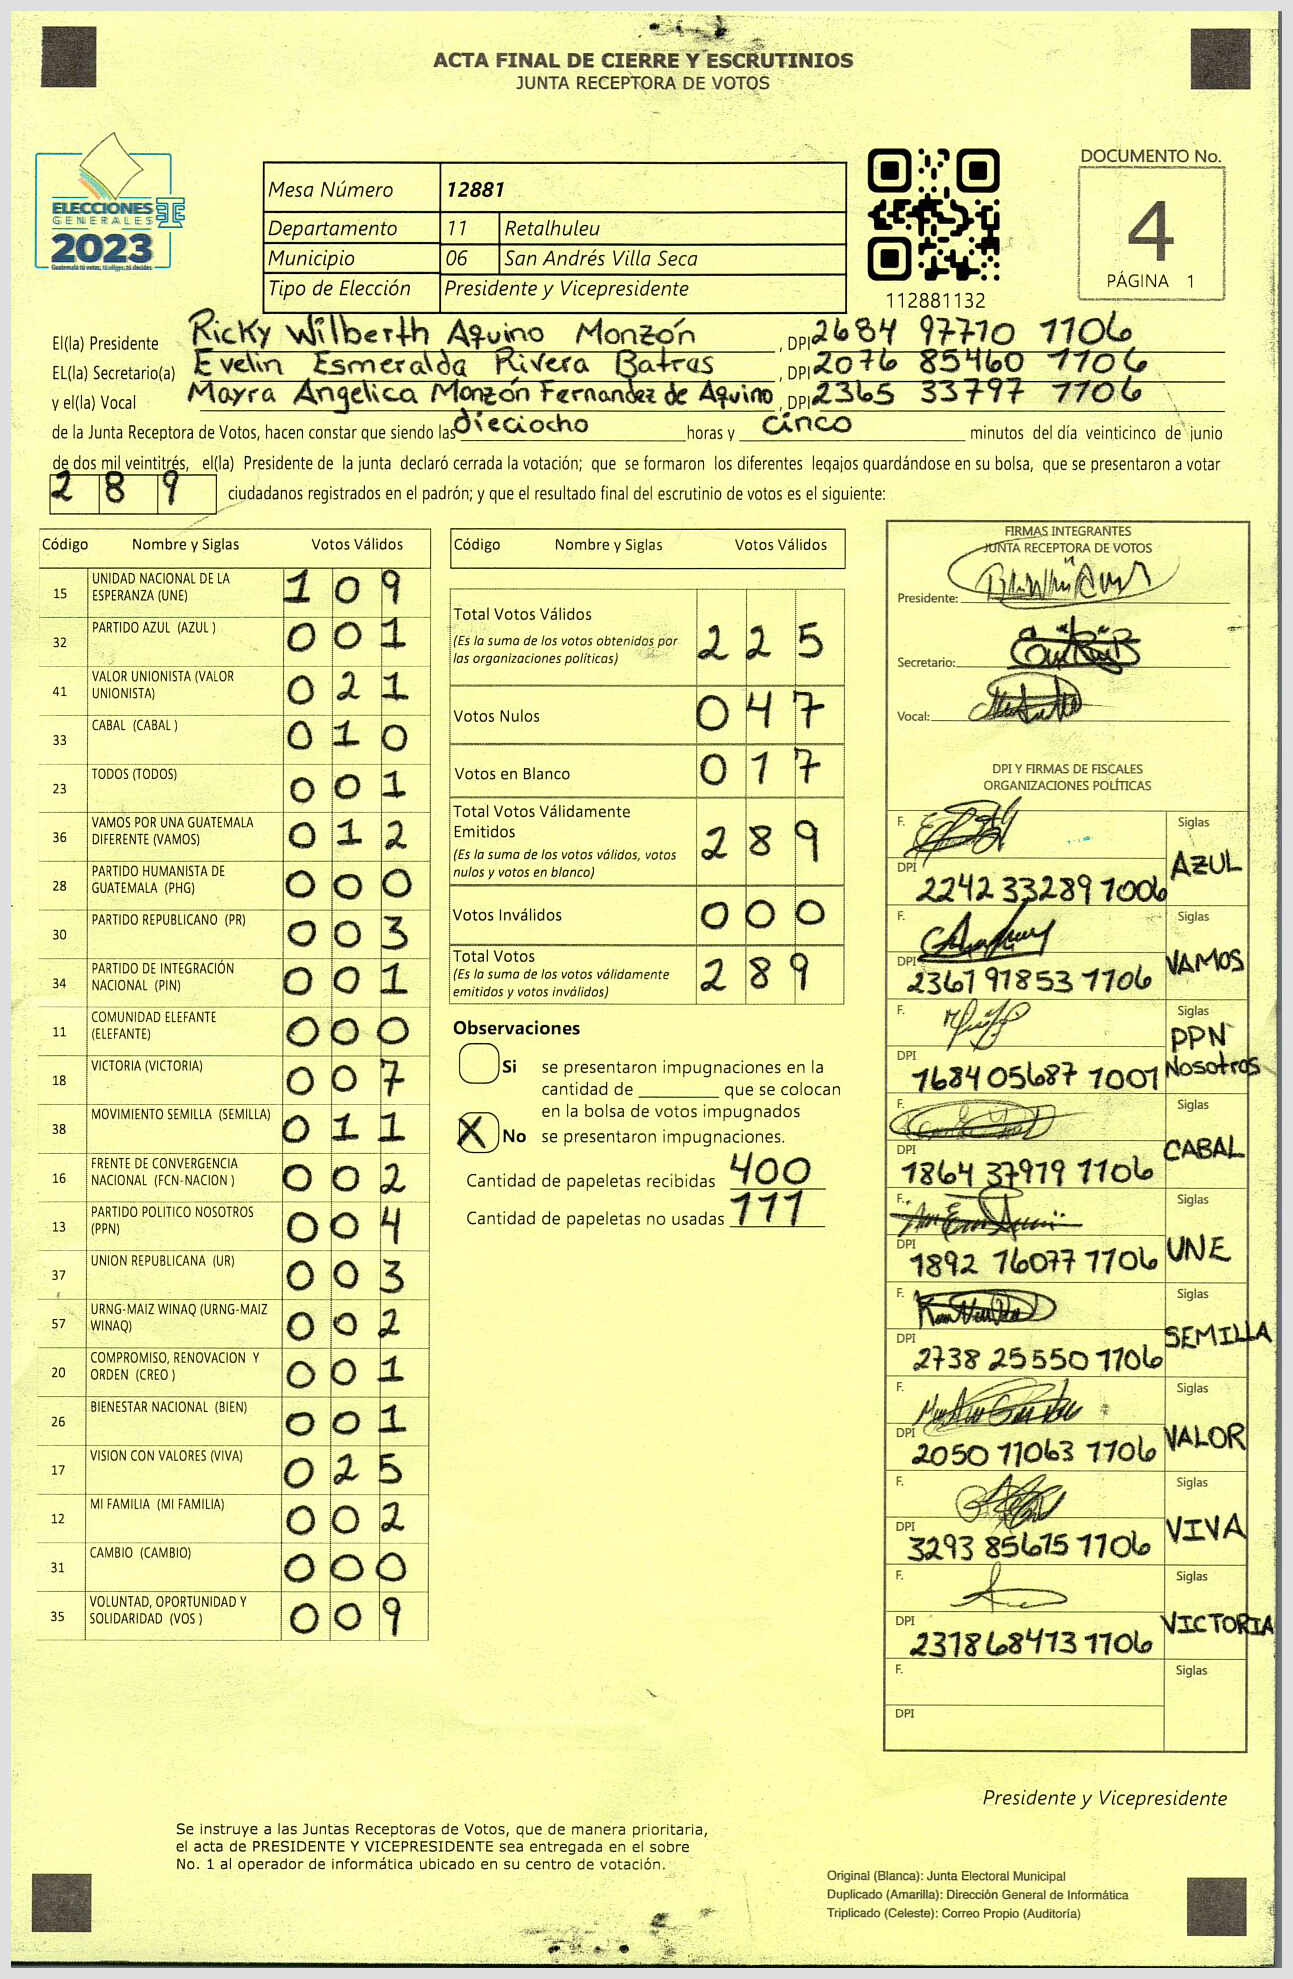 ACTA FINAL DE CIERRE Y ESCRUTINIOS
JUNTA RECEPTORA DE VOTOS
ELECCIONES
GENERALES
2023
Guatemala tú votas, tú eliges, tú decides
Mesa Número 12881
Departamento 11 Retalhuleu
Municipio 06 San Andrés Villa Seca
Tipo de Elección Presidente y Vicepresidente
112881132
DOCUMENTO No.
4
PÁGINA 1
El(la) Presidente Ricky Wilberth Aquino Monzón, DPI 2684 97710 1106
EL(la) Secretario(a) Evelin Esmeralda Rivera Batras, DPI 2076 85460 1106
y el(la) Vocal Mayra Angelica Monzón Fernandez de Aquino, DPI 2365 33797 1106
de la Junta Receptora de Votos, hacen constar que siendo las dieciocho horas y cinco minutos del día veinticinco de junio
de dos mil veintitrés, el(la) Presidente de la junta declaró cerrada la votación; que se formaron los diferentes legajos guardándose en su bolsa, que se presentaron a votar
289 ciudadanos registrados en el padrón; y que el resultado final del escrutinio de votos es el siguiente:
Código Nombre y Siglas Votos Válidos
15 UNIDAD NACIONAL DE LA ESPERANZA (UNE) 109
32 PARTIDO AZUL (AZUL ) 001
41 VALOR UNIONISTA (VALOR UNIONISTA) 021
33 CABAL (CABAL ) 010
23 TODOS (TODOS) 001
36 VAMOS POR UNA GUATEMALA DIFERENTE (VAMOS) 012
28 PARTIDO HUMANISTA DE GUATEMALA (PHG) 000
30 PARTIDO REPUBLICANO (PR) 003
34 PARTIDO DE INTEGRACIÓN NACIONAL (PIN) 001
11 COMUNIDAD ELEFANTE (ELEFANTE) 000
18 VICTORIA (VICTORIA) 007
38 MOVIMIENTO SEMILLA (SEMILLA) 011
16 FRENTE DE CONVERGENCIA NACIONAL (FCN-NACION ) 002
13 PARTIDO POLITICO NOSOTROS (PPN) 004
37 UNION REPUBLICANA (UR) 003
57 URNG-MAIZ WINAQ (URNG-MAIZ WINAQ) 002
20 COMPROMISO, RENOVACION Y ORDEN (CREO ) 001
26 BIENESTAR NACIONAL (BIEN) 001
17 VISION CON VALORES (VIVA) 025
12 MI FAMILIA (MI FAMILIA) 002
31 CAMBIO (CAMBIO) 000
35 VOLUNTAD, OPORTUNIDAD Y SOLIDARIDAD (VOS ) 009
Código Nombre y Siglas Votos Válidos
Total Votos Válidos 225
(Es la suma de los votos obtenidos por
las organizaciones políticas)
Votos Nulos 047
Votos en Blanco 017
Total Votos Válidamente
Emitidos 289
(Es la suma de los votos válidos, votos
nulos y votos en blanco)
Votos Inválidos 000
Total Votos 289
(Es la suma de los votos válidamente
emitidos y votos inválidos)
Observaciones
Si se presentaron impugnaciones en la
cantidad de ________ que se colocan
en la bolsa de votos impugnados
X No se presentaron impugnaciones.
Cantidad de papeletas recibidas 400
Cantidad de papeletas no usadas 111
FIRMAS INTEGRANTES
JUNTA RECEPTORA DE VOTOS
Presidente:
Secretario:
Vocal:
DPI Y FIRMAS DE FISCALES
ORGANIZACIONES POLÍTICAS
F. Siglas AZUL
DPI 2242 33289 1006
F. Siglas VAMOS
DPI 2367 91853 1106
F. Siglas PPN Nosotros
DPI 1684 05687 1001
F. Siglas CABAL
DPI 1864 37919 1106
F. Siglas UNE
DPI 1892 16077 1106
F. Siglas SEMILLA
DPI 2738 25550 1106
F. Siglas VALOR
DPI 2050 11063 1106
F. Siglas VIVA
DPI 3293 85615 1106
F. Siglas VICTORIA
DPI 2318 68413 1106
F. Siglas
DPI
Presidente y Vicepresidente
Se instruye a las Juntas Receptoras de Votos, que de manera prioritaria,
el acta de PRESIDENTE Y VICEPRESIDENTE sea entregada en el sobre
No. 1 al operador de informática ubicado en su centro de votación.
Original (Blanca): Junta Electoral Municipal
Duplicado (Amarilla): Dirección General de Informática
Triplicado (Celeste): Correo Propio (Auditoría)